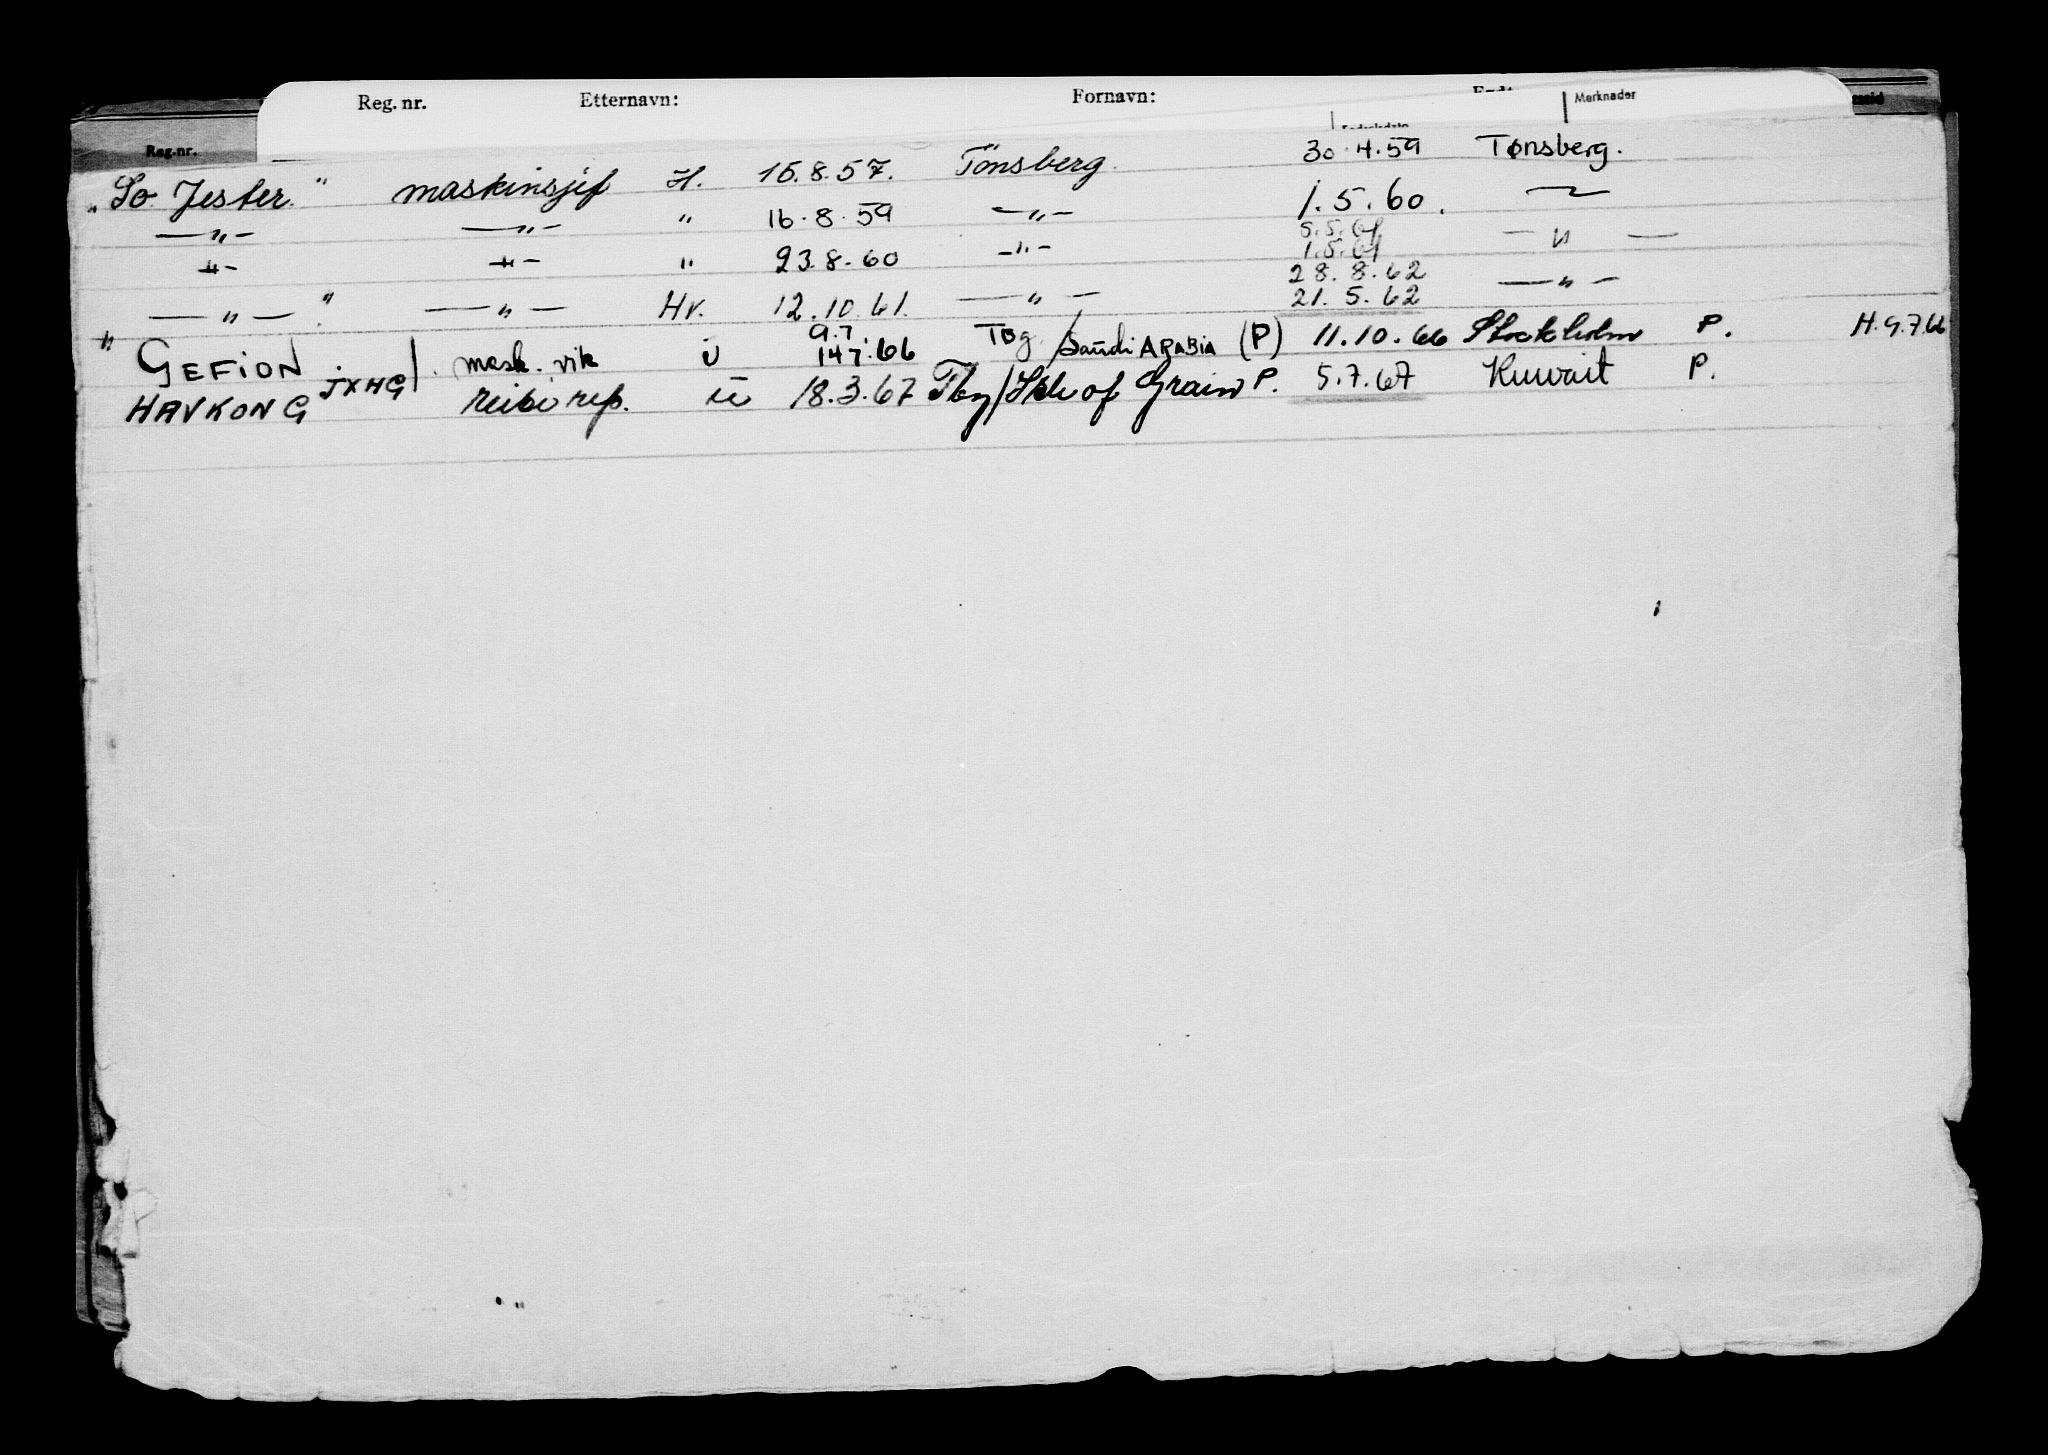 Reg. nr. Etternavn: Fornavn:
Merknader
Reg.nr.
"So Jester." maskinsjef H. 15.8.57. Tønsberg. 30.4.59 Tønsberg.
— " — — " — " 16.8.59 — " — 1.5.60.
— " — — " — " 23.8.60 — " — 5.5.61 — " —
1.5.61
28.8.62
— " — " — " — Hv. 12.10.61. — " — 21.5.62 — " —
9.7.
" GEFION. JXHG mask. vik ü 14.7.66 Tbg / Saudi ARABIA (P) 11.10.66 Stockholm P. H. 9.7.66
HAVKONG rep. ü 18.3.67 Tbg / Isle of Grain P. 5.7.67 Kuwait P.